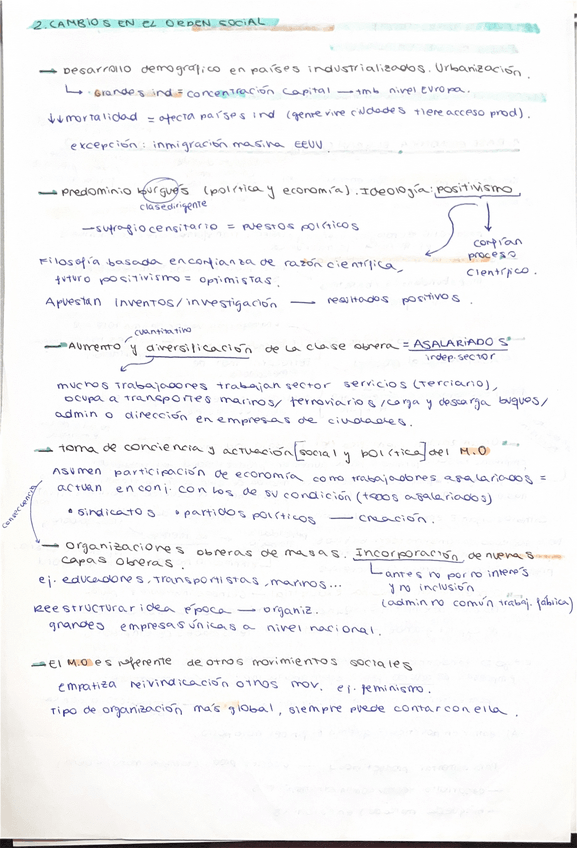 2. CAMBIOS EN EL ORDEN SOCIAL
→ Desarrollo demográfico en países industrializados. Urbanización.
↳ Grandes ind = concentración capital → tmb nivel Europa.
↓↓ mortalidad = afecta países ind (gente vive ciudades tiene acceso prod).
excepción: inmigración masiva EEUU.
→ Predominio burgués (política y economía). Ideología: positivismo
clase dirigente
- sufragio censitario = puestos políticos
confían
proceso
científico.
Filosofía basada en confianza de razón científica,
futuro positivismo = optimistas.
Apuestan inventos/investigación → resultados positivos.
cuantitativo
→ Aumento y diversificación de la clase obrera = ASALARIADOS
indep. sector
muchos trabajadores trabajan sector servicios (terciario),
ocupa a transportes marinos/ ferroviarios/carga y descarga buques/
admin o dirección en empresas de ciudades.
→ Toma de conciencia y actuación [social y política] del M.O
Asumen participación de economía como trabajadores asalariados =
actúan en conj. con los de su condición (todos asalariados)
• sindicatos • partidos políticos — creación.
consecuencia
→ Organizaciones obreras de masas. Incorporación de nuevas
capas obreras.
↳ antes no por no interés
y no inclusión
(admin no común trabaj. fábrica)
ej. educadores, transportistas, marinos...
Reestructurar idea época → organiz.
grandes empresas únicas a nivel nacional.
→ El M.O es referente de otros movimientos sociales
empatiza reivindicación otros mov. ej. feminismo.
Tipo de organización más global, siempre puede contar con ella.